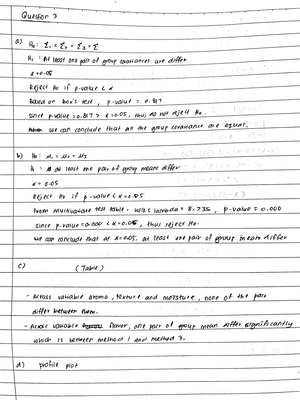 Question 3
a) H₀: Σ₁ = Σ₂ = Σ₃ = Σ
H₁: At least one pair of group covariances are differ
α = 0.05
Reject H₀ if p-value < α
Based on box's test, p-value = 0.817
since p-value = 0.817 > α = 0.05, thus do not reject H₀.
we can conclude that all the group covariance are equal.
b) H₀: μ₁ = μ₂ = μ₃
H₁: At least one pair of group means differ
α = 0.05
Reject H₀ if p-value < α = 0.05
From Multivariate test table: Wilks lambda = 8.735, p-value = 0.000
since p-value = 0.000 < α = 0.05, thus reject H₀.
we can conclude that at α = 0.05, at least one pair of group mean differ
c) (Table)
- Across variable aroma, texture and moisture, none of the pair
differ between them.
- Across variable flavor, one pair of group mean differ significantly
which is between method 1 and method 3.
d) profile plot